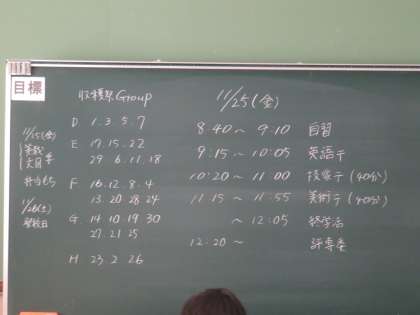 目標
11/25(金)
11/26(土)
収穫祭Group
D 1.3.5.7
E 17.15.22
29 6.11.18
F 16.12.8.4
13.20.28.24
G 14 10 19 30
27.21 25
H 23 2 26
11/25(金)
8:40〜9:10 自習
9:15〜10:05 英語テ
10:20〜11:00 技家テ(40分)
11:15〜11:55 美術テ(40分)
〜12:05 終学活
12:20〜 評専委